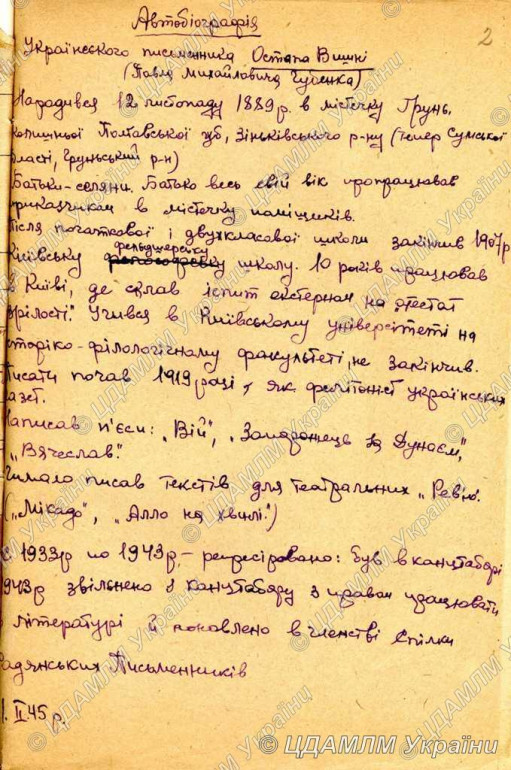 Автобіографія
2
Українського письменника Остапа Вишні
(Павла Михайловича Губенка)
Народився 12 листопаду 1889 р. в містечку Грунь,
колишньої Полтавської губ, Зіньківського р-ну (тепер Сумської
області, Груньський р-н)
Батьки - селяни. Батько весь свій вік пропрацював
приказчиком в містечку поміщиків.
Після початкової і двухкласової школи закінчив 1907 р
фельдшерську
Київську школу. 10 років працював
в Київі, де склав іспит екстерном на атестат
зрілости". Учився в Київському університеті на
історико-філологічному факультеті, не закінчив.
Писати почав 1919 році, як фейлітоніст українських
газет.
Написав п'єси: „Вій", „Запорожець за Дунаєм",
„Вячеслав".
Чимало писав текстів для театральних „Рев'ю".
(„Мікадо", „Алло на хвилі")
З 1933 р по 1943 р. - репресіровано: був в канцтаборі
1943 р звільнено з канцтабору з правом працювати
в літературі й поновлено в членстві Спілки
Радянських Письменників
II.45 р.
© ЦДАМЛМ України